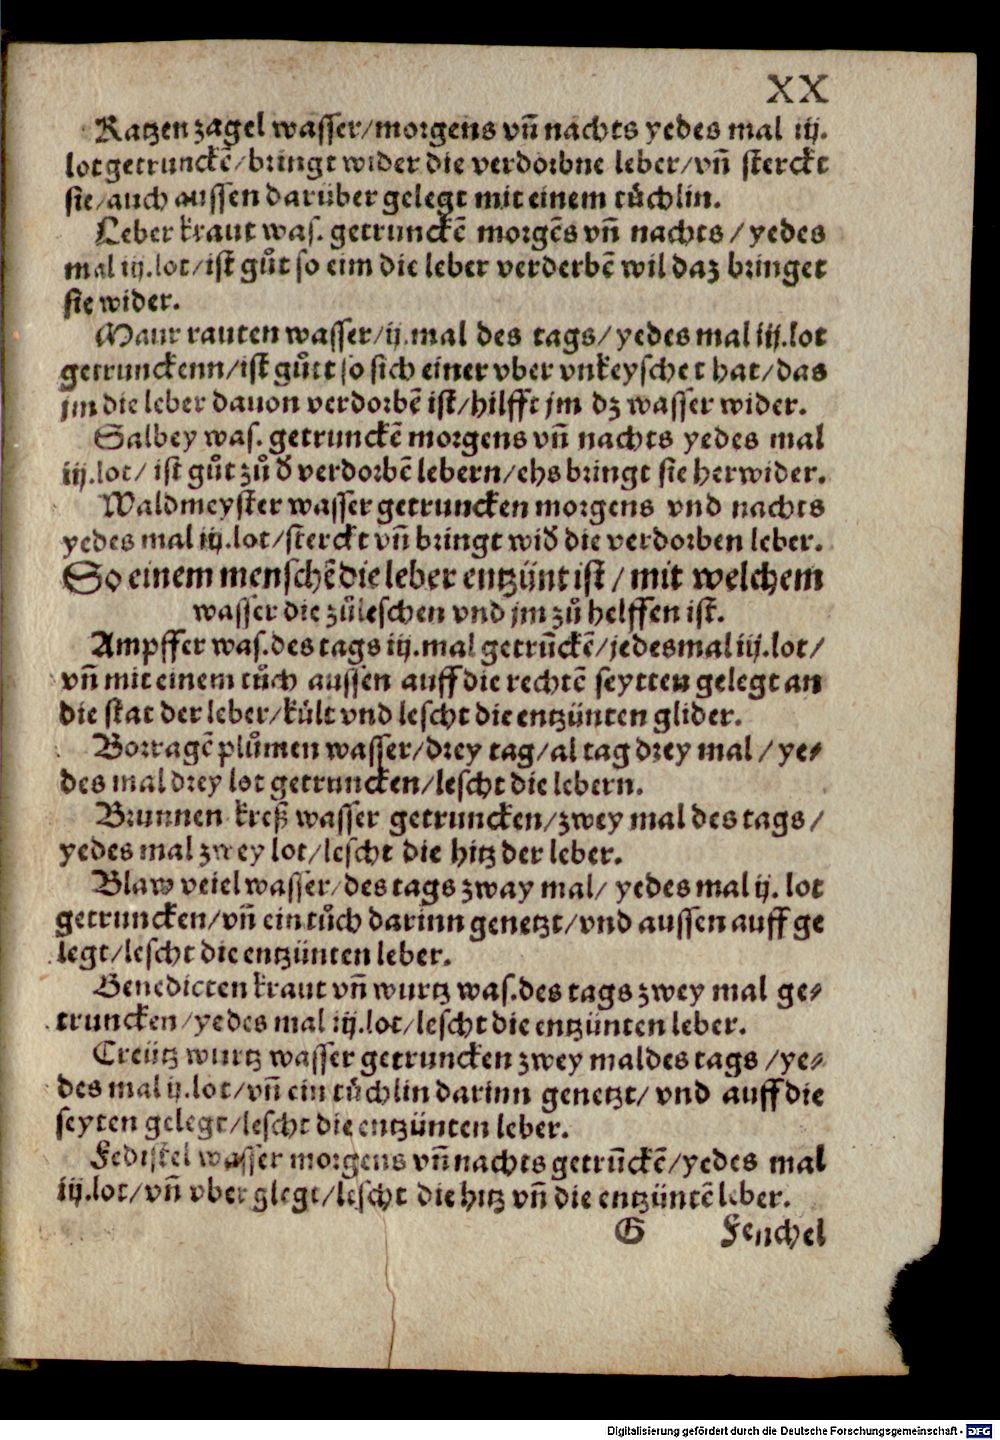 XX
Katzen zagel wasser/morgens vñ nachts yedes mal iij.
lot getrunckē/bringt wider die verdorbne leber/vñ sterckt
sie/auch aussen darüber gelegt mit einem tůchlin.
Leber kraut was. getrunckē morgēs vñ nachts/yedes
mal iij.lot/ist gůt so eim die leber verderbē wil daz bringet
sie wider.
Maur rauten wasser/ij.mal des tags/yedes mal iij.lot
getrunckenn/ist gůtt so sich einer vber vnkeyschet hat/das
jm die leber dauon verdorbē ist/hilfft jm dz wasser wider.
Salbey was. getrunckē morgens vñ nachts yedes mal
iij.lot/ ist gůt zů d̄ verdorbē lebern/ehs bringt sie herwider.
Waldmeyster wasser getruncken morgens vnd nachts
yedes mal iij.lot/sterckt vñ bringt wid̄ die verdorben leber.
So einem menschē die leber entzünt ist/mit welchem
wasser die zůleschen vnd jm zů helffen ist.
Ampffer was.des tags iij.mal getrūckē/jedesmal iij.lot/
vñ mit einem tůch aussen auff die rechtē seytten gelegt an
die stat der leber/kült vnd lescht die entzünten glider.
Borragē plůmen wasser/drey tag/al tag drey mal/ye⸗
des mal drey lot getruncken/lescht die lebern.
Brunnen kreß wasser getruncken/zwey mal des tags/
yedes mal zwey lot/lescht die hitz der leber.
Blaw veiel wasser/des tags zway mal/ yedes mal ij. lot
getruncken/vñ ein tůch darinn genetzt/vnd aussen auff ge
legt/lescht die entzünten leber.
Benedicten kraut vñ wurtz was.des tags zwey mal ge⸗
truncken/yedes mal iij.lot/lescht die entzünten leber.
Creütz wurtz wasser getruncken zwey mal des tags/ye⸗
des mal ij.lot/vñ ein tůchlin darinn genetzt/ vnd auff die
seyten gelegt/lescht die entzünten leber.
Fedistel wasser morgens vñ nachts getrūckē/yedes mal
iij.lot/vñ vber glegt/lescht die hitz vñ die entzüntē leber.
G Fenchel
Digitalisierung gefördert durch die Deutsche Forschungsgemeinschaft - DFG